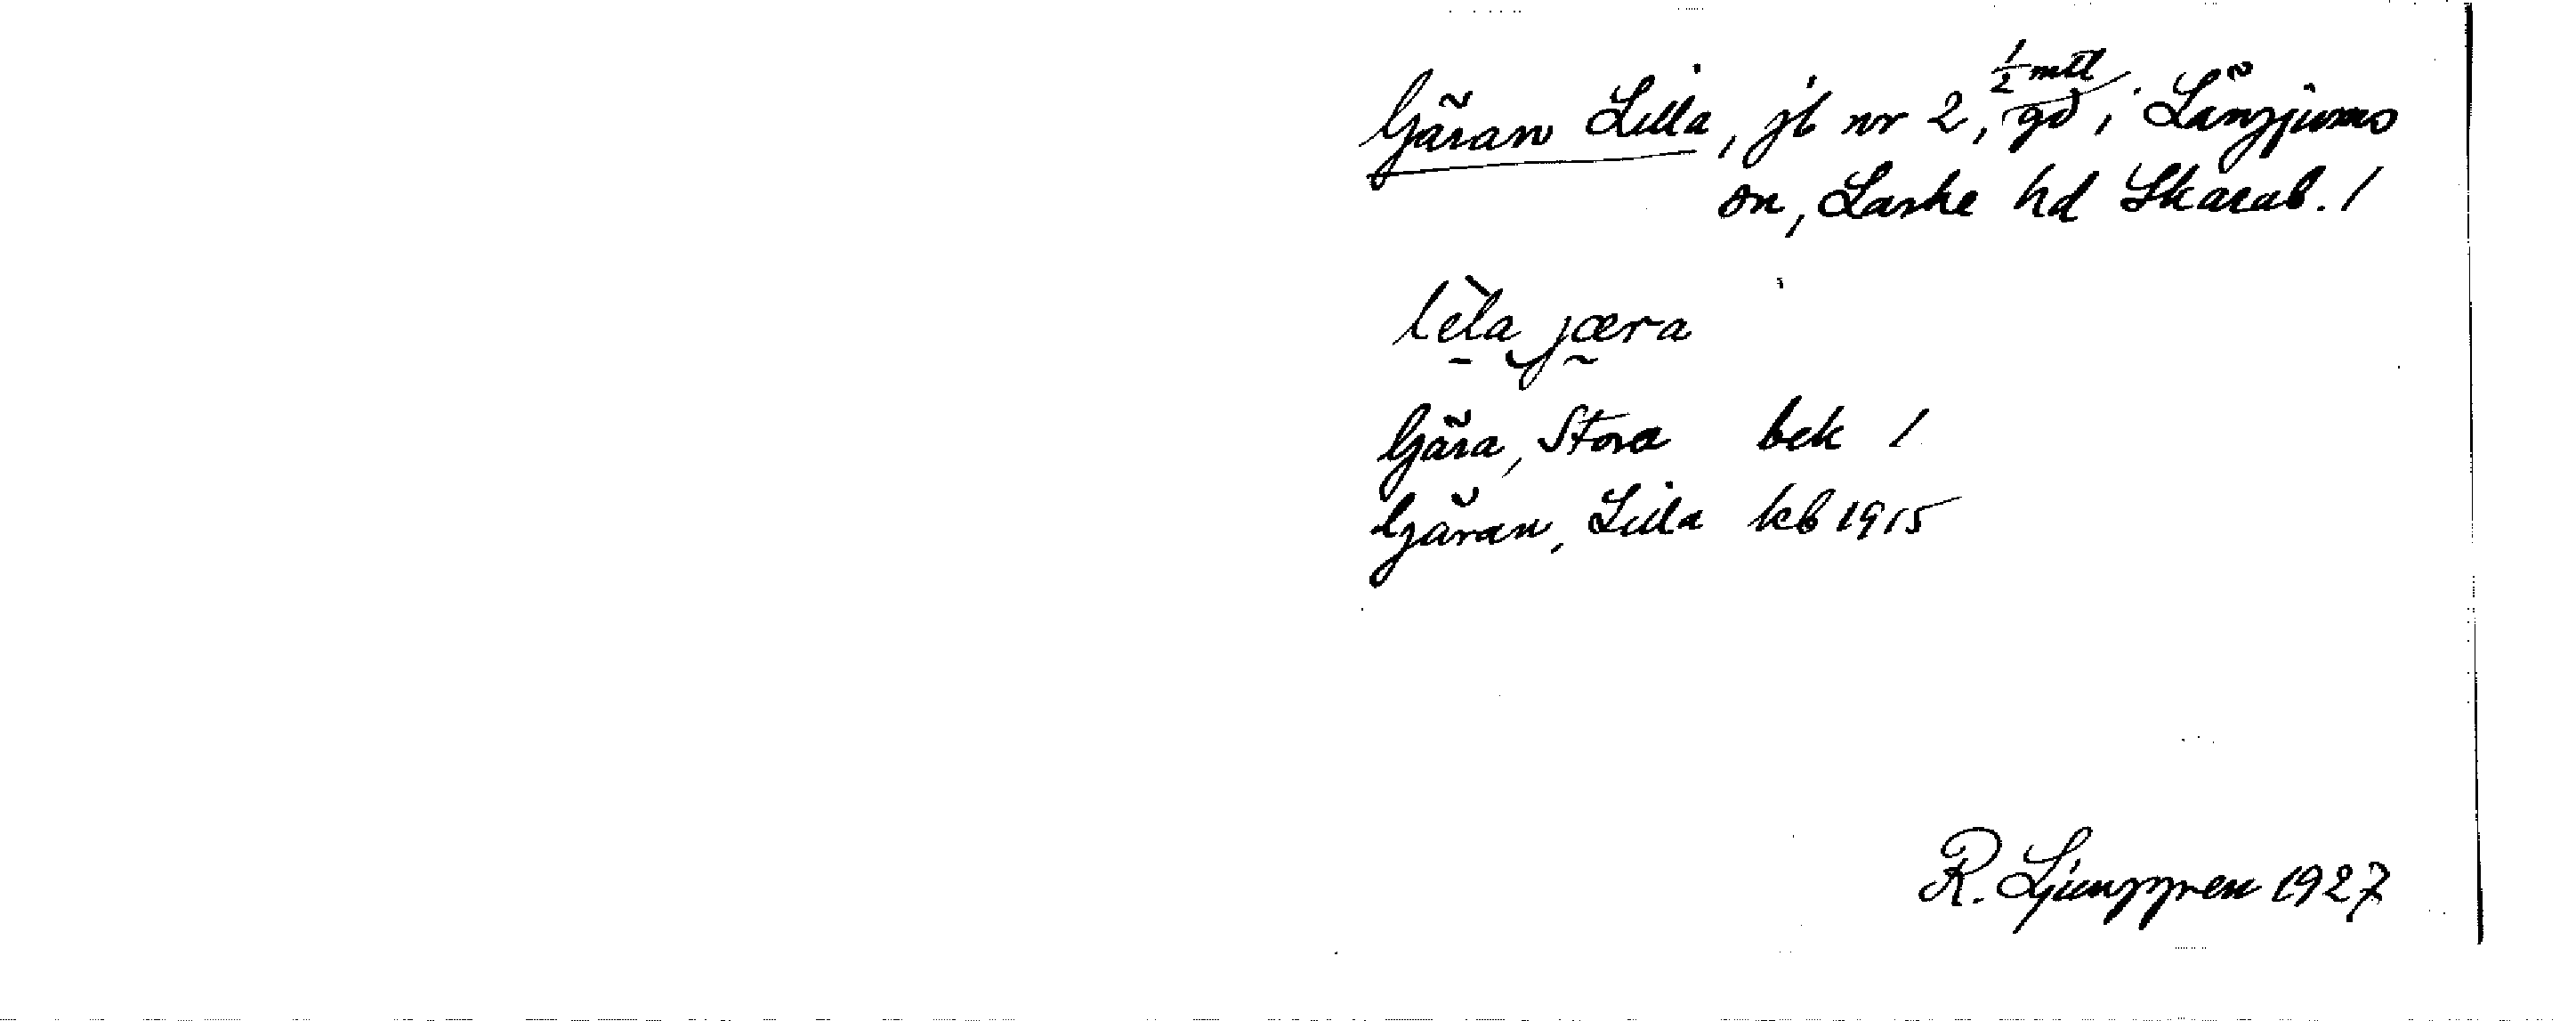 Gäran Lilla, jb nr 2, 1/2 mtl gd i Längjums
sn, Laske hd Skarab. l
lèla jæra
Gära, Stora bek l
Gäran, Lilla kb 1915
R. Ljunggren 1927